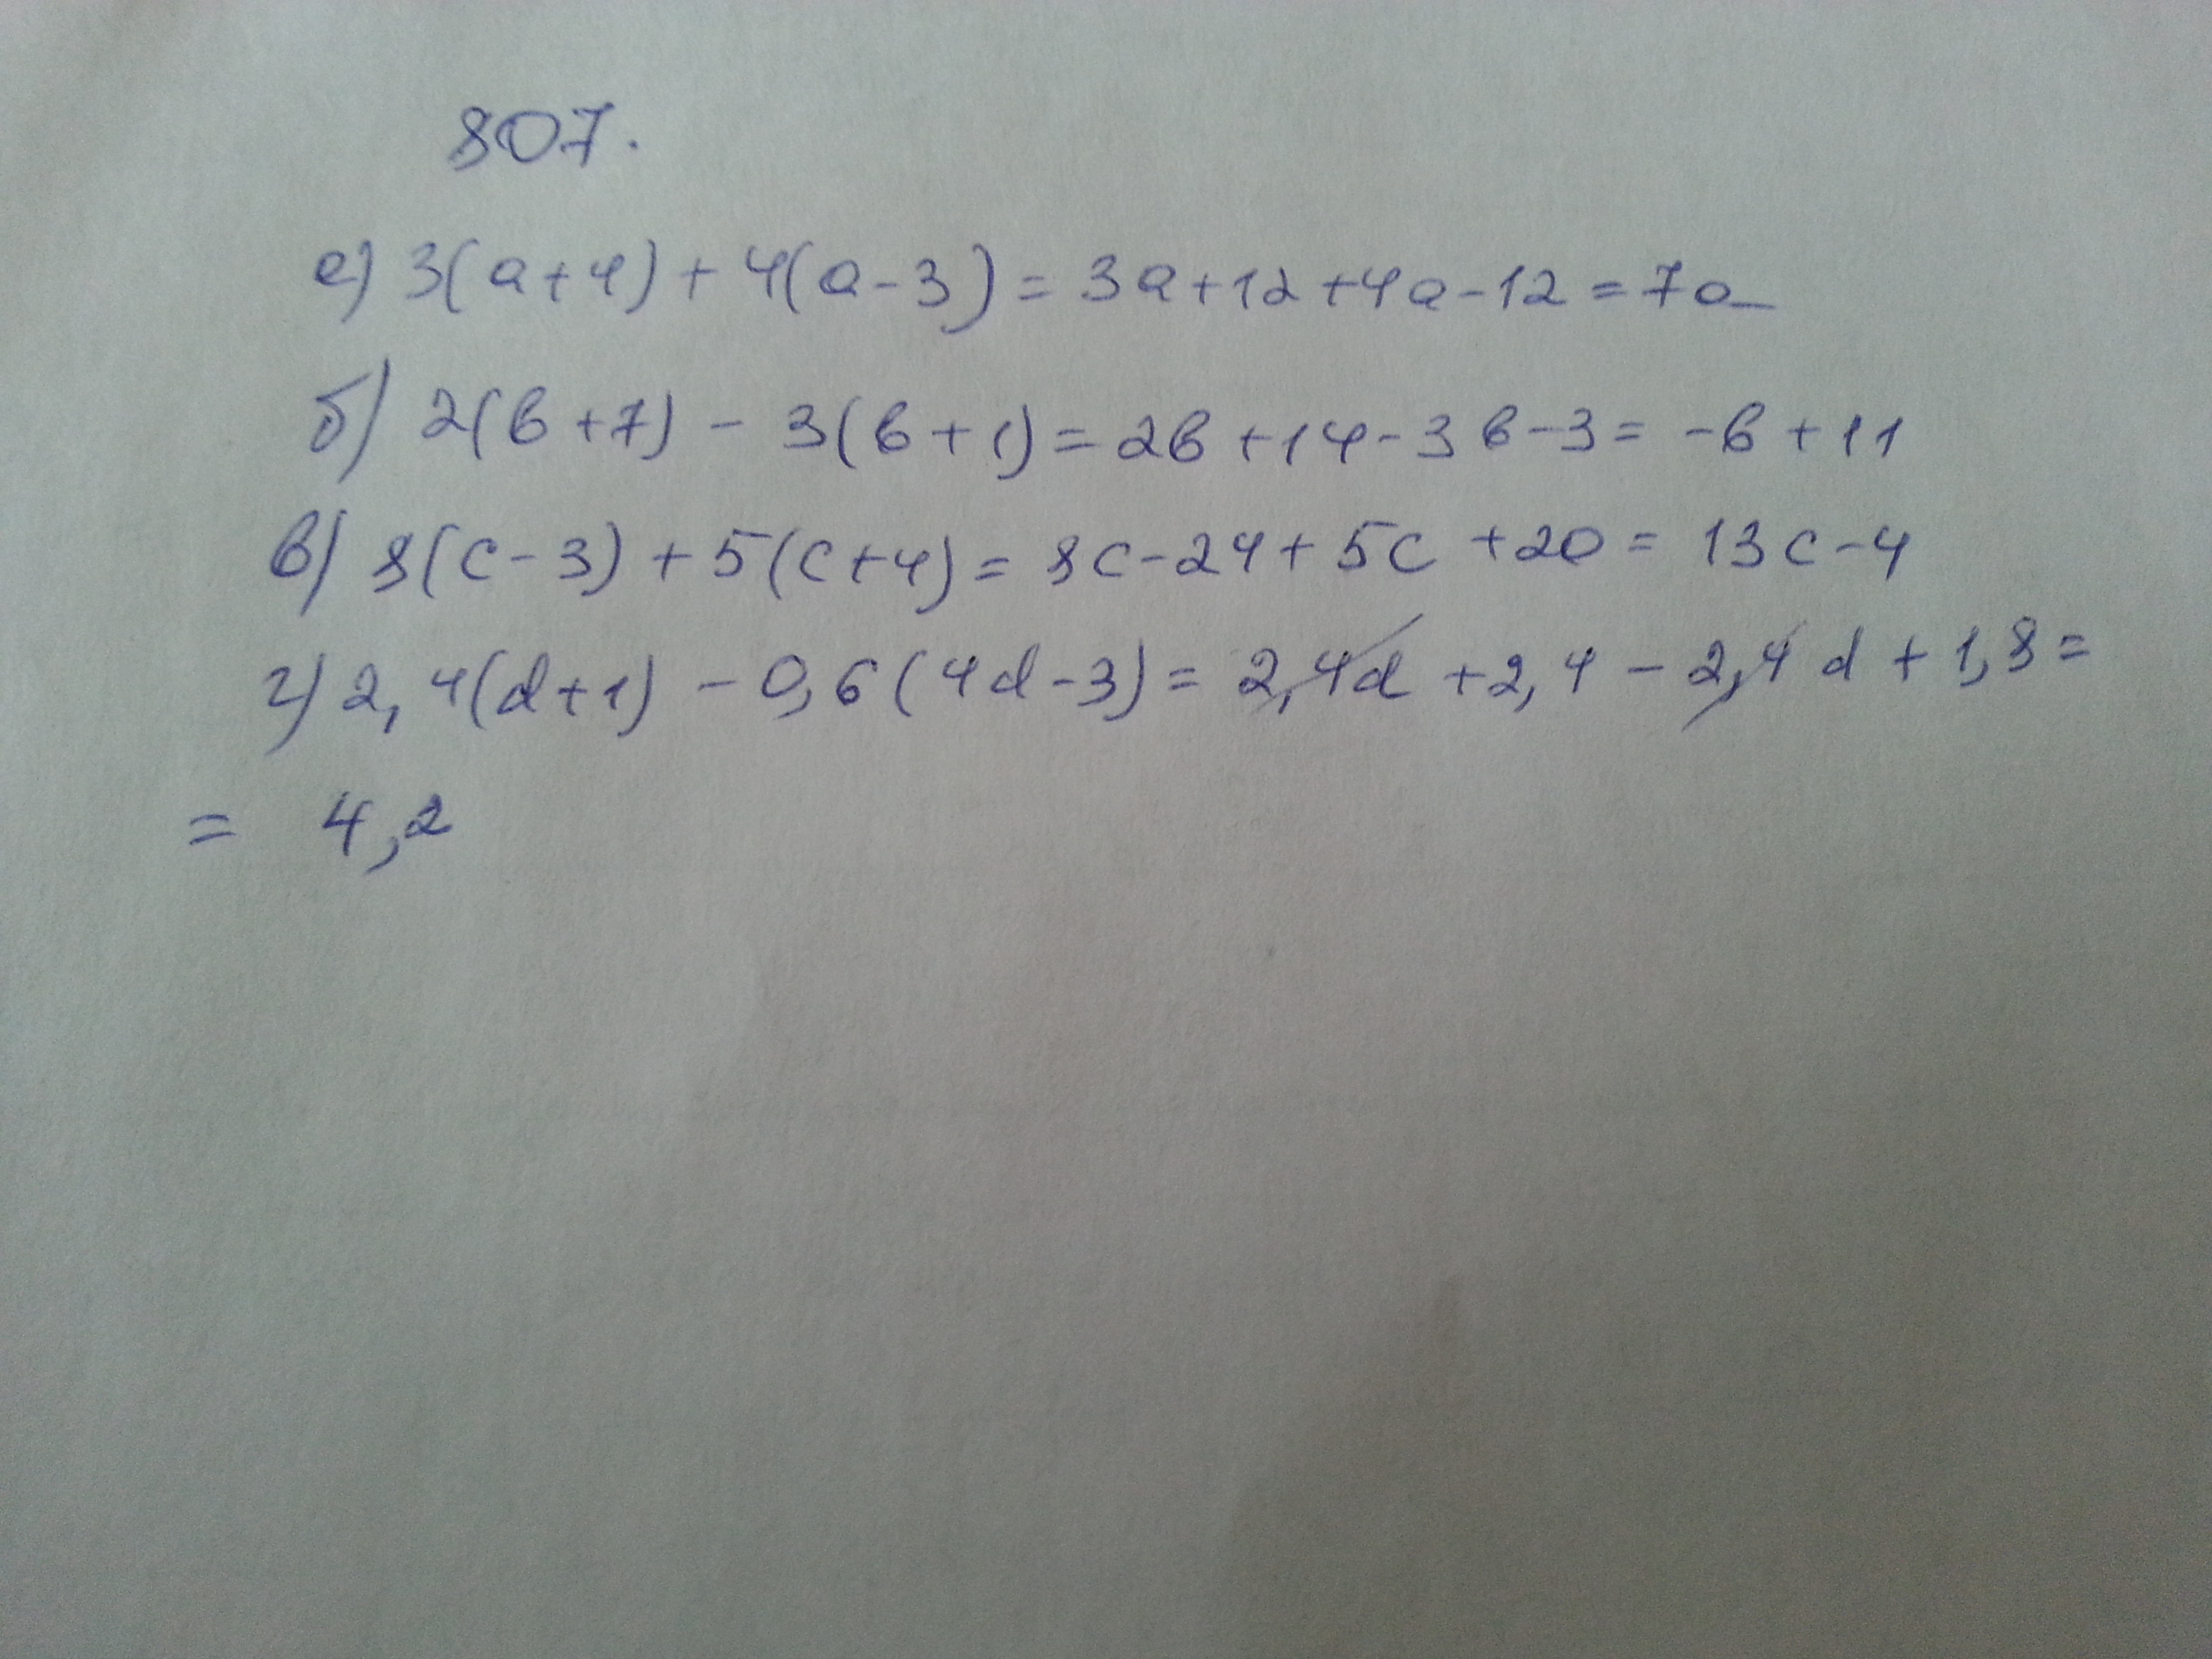 807.
а) 3(a+4) + 4(a-3) = 3a+12+4a-12 = 7a
б) 2(b+7) - 3(b+1) = 2b+14-3b-3 = -b+11
в) 8(c-3) + 5(c+4) = 8c-24+5c+20 = 13c-4
г) 2,4(d+1) - 0,6(4d-3) = 2,4d+2,4-2,4d+1,8=
= 4,2